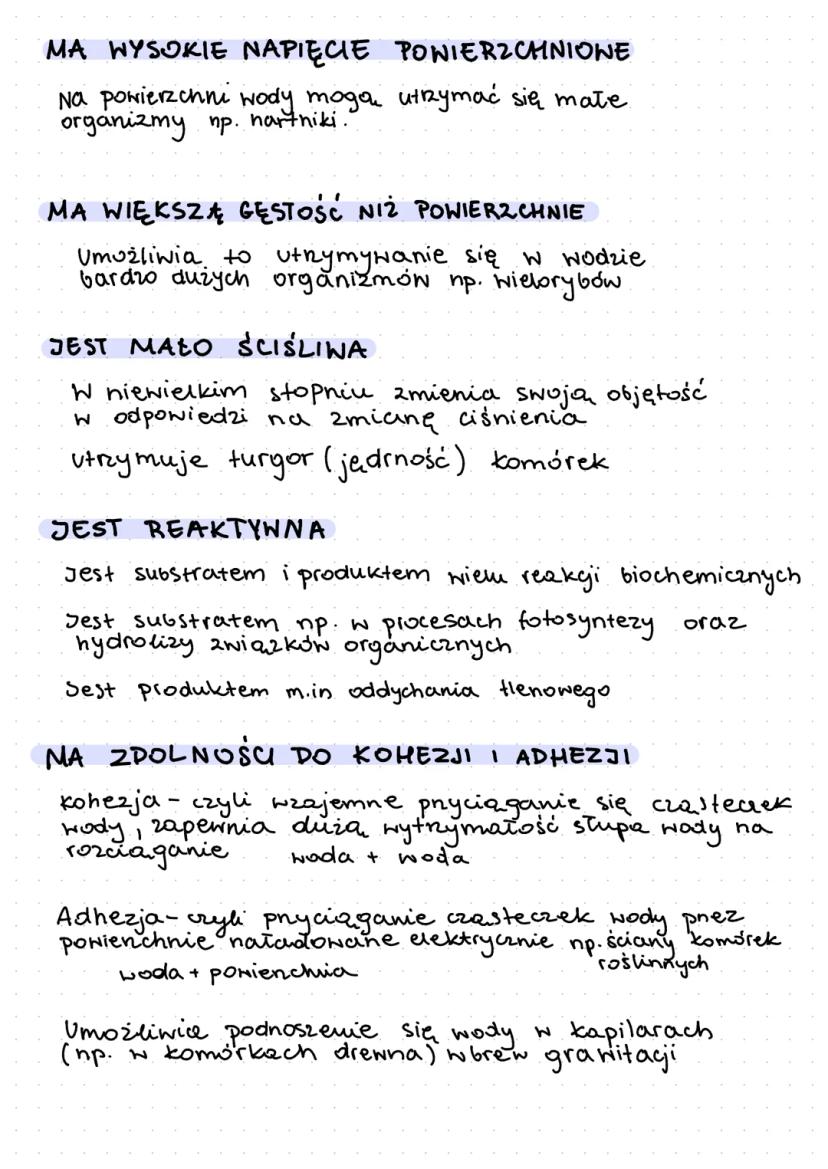 MA WYSOKIE NAPIĘCIE POWIERZCHNIOWE
Na powierzchni wody mogą utrzymać się małe
organizmy np. nartniki.
MA WIĘKSZĄ GĘSTOŚĆ NIŻ POWIERZCHNIE
Umożliwia to utrzymywanie się w wodzie
bardzo dużych organizmów np. wielorybów
JEST MAŁO ŚCIŚLIWA
W niewielkim stopniu zmienia swoją objętość
w odpowiedzi na zmianę ciśnienia
utrzymuje turgor (jędrność) komórek
JEST REAKTYWNA
Jest substratem i produktem wielu reakcji biochemicznych
Jest substratem np. w procesach fotosyntezy oraz
hydrolizy związków organicznych
Jest produktem m.in oddychania tlenowego
MA ZDOLNOŚCI DO KOHEZJI I ADHEZJI
kohezja - czyli wzajemne przyciąganie się cząsteczek
wody, zapewnia dużą wytrzymałość słupa wody na
rozciąganie woda + woda
Adhezja - czyli przyciąganie cząsteczek wody przez
powierzchnie naładowane elektrycznie np. ściany komórek
roślinnych
woda + powierzchnia
Umożliwia podnoszenie się wody w kapilarach
(np. w komórkach drewna) wbrew grawitacji